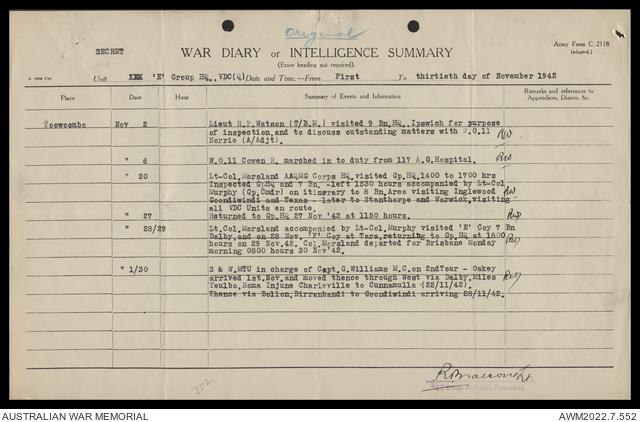 Original
SECRET
Army Form C. 2118
(adapted.)
WAR DIARY or INTELLIGENCE SUMMARY
(Erase heading not required).
Unit XXX 'E' Group HQ., VDC(Q) Date and Time.—From First To thirtieth day of November 1942
Place Date Hour Summary of Events and Information Remarks and references to Appendices, Diaries, &c.
Toowoomba Nov 2 Lieut R.P.Watson (T/B.M.) visited 9 Bn.HQ., Ipswich for purpose
of inspection, and to discuss outstanding matters with W.O.11
Norrie (A/Adjt).
" 6 W.O.11 Cowen R. marched in to duty from 117 A.G.Hospital.
" 20 Lt-Col.Marsland AAQMG Corps HQ.visited Gp.HQ.1400 to 1700 hrs
Inspected GpHQ and 7 Bn. -left 1530 hours accompanied by Lt-Col
Murphy (Gp.Cmdr) on itinerary to 8 Bn. Area visiting Inglewood
Goondiwindi and Texas - later to Stanthorpe and Warwick, visiting
all VDC Units en route.
" 27 Returned to Gp.HQ 27 Nov '42 at 1150 hours.
" 28/29 Lt.Col.Marsland accompanied by Lt-Col.Murphy visited 'E' Coy 7 Bn
Dalby, and on 28 Nov. 'F' Coy at Tara, returning to Gp.HQ at 1800
hours on 29 Nov.42. Col.Marsland departed for Brisbane Monday
morning 0800 hours 30 Nov'42.
" 1/30 S & W.MTU in charge of Capt.G.Williams M.C.on 2nd Tour - Oakey
arrived 1st.Nov.and moved thence through west via Dalby, Miles
Yeulba, Roma Injune Charleville to Cunnamulla (22/11/42).
Thence via Bollon, Dirranbandi to Goondiwindi arriving 28/11/42.
AUSTRALIAN WAR MEMORIAL
AWM2022.7.552